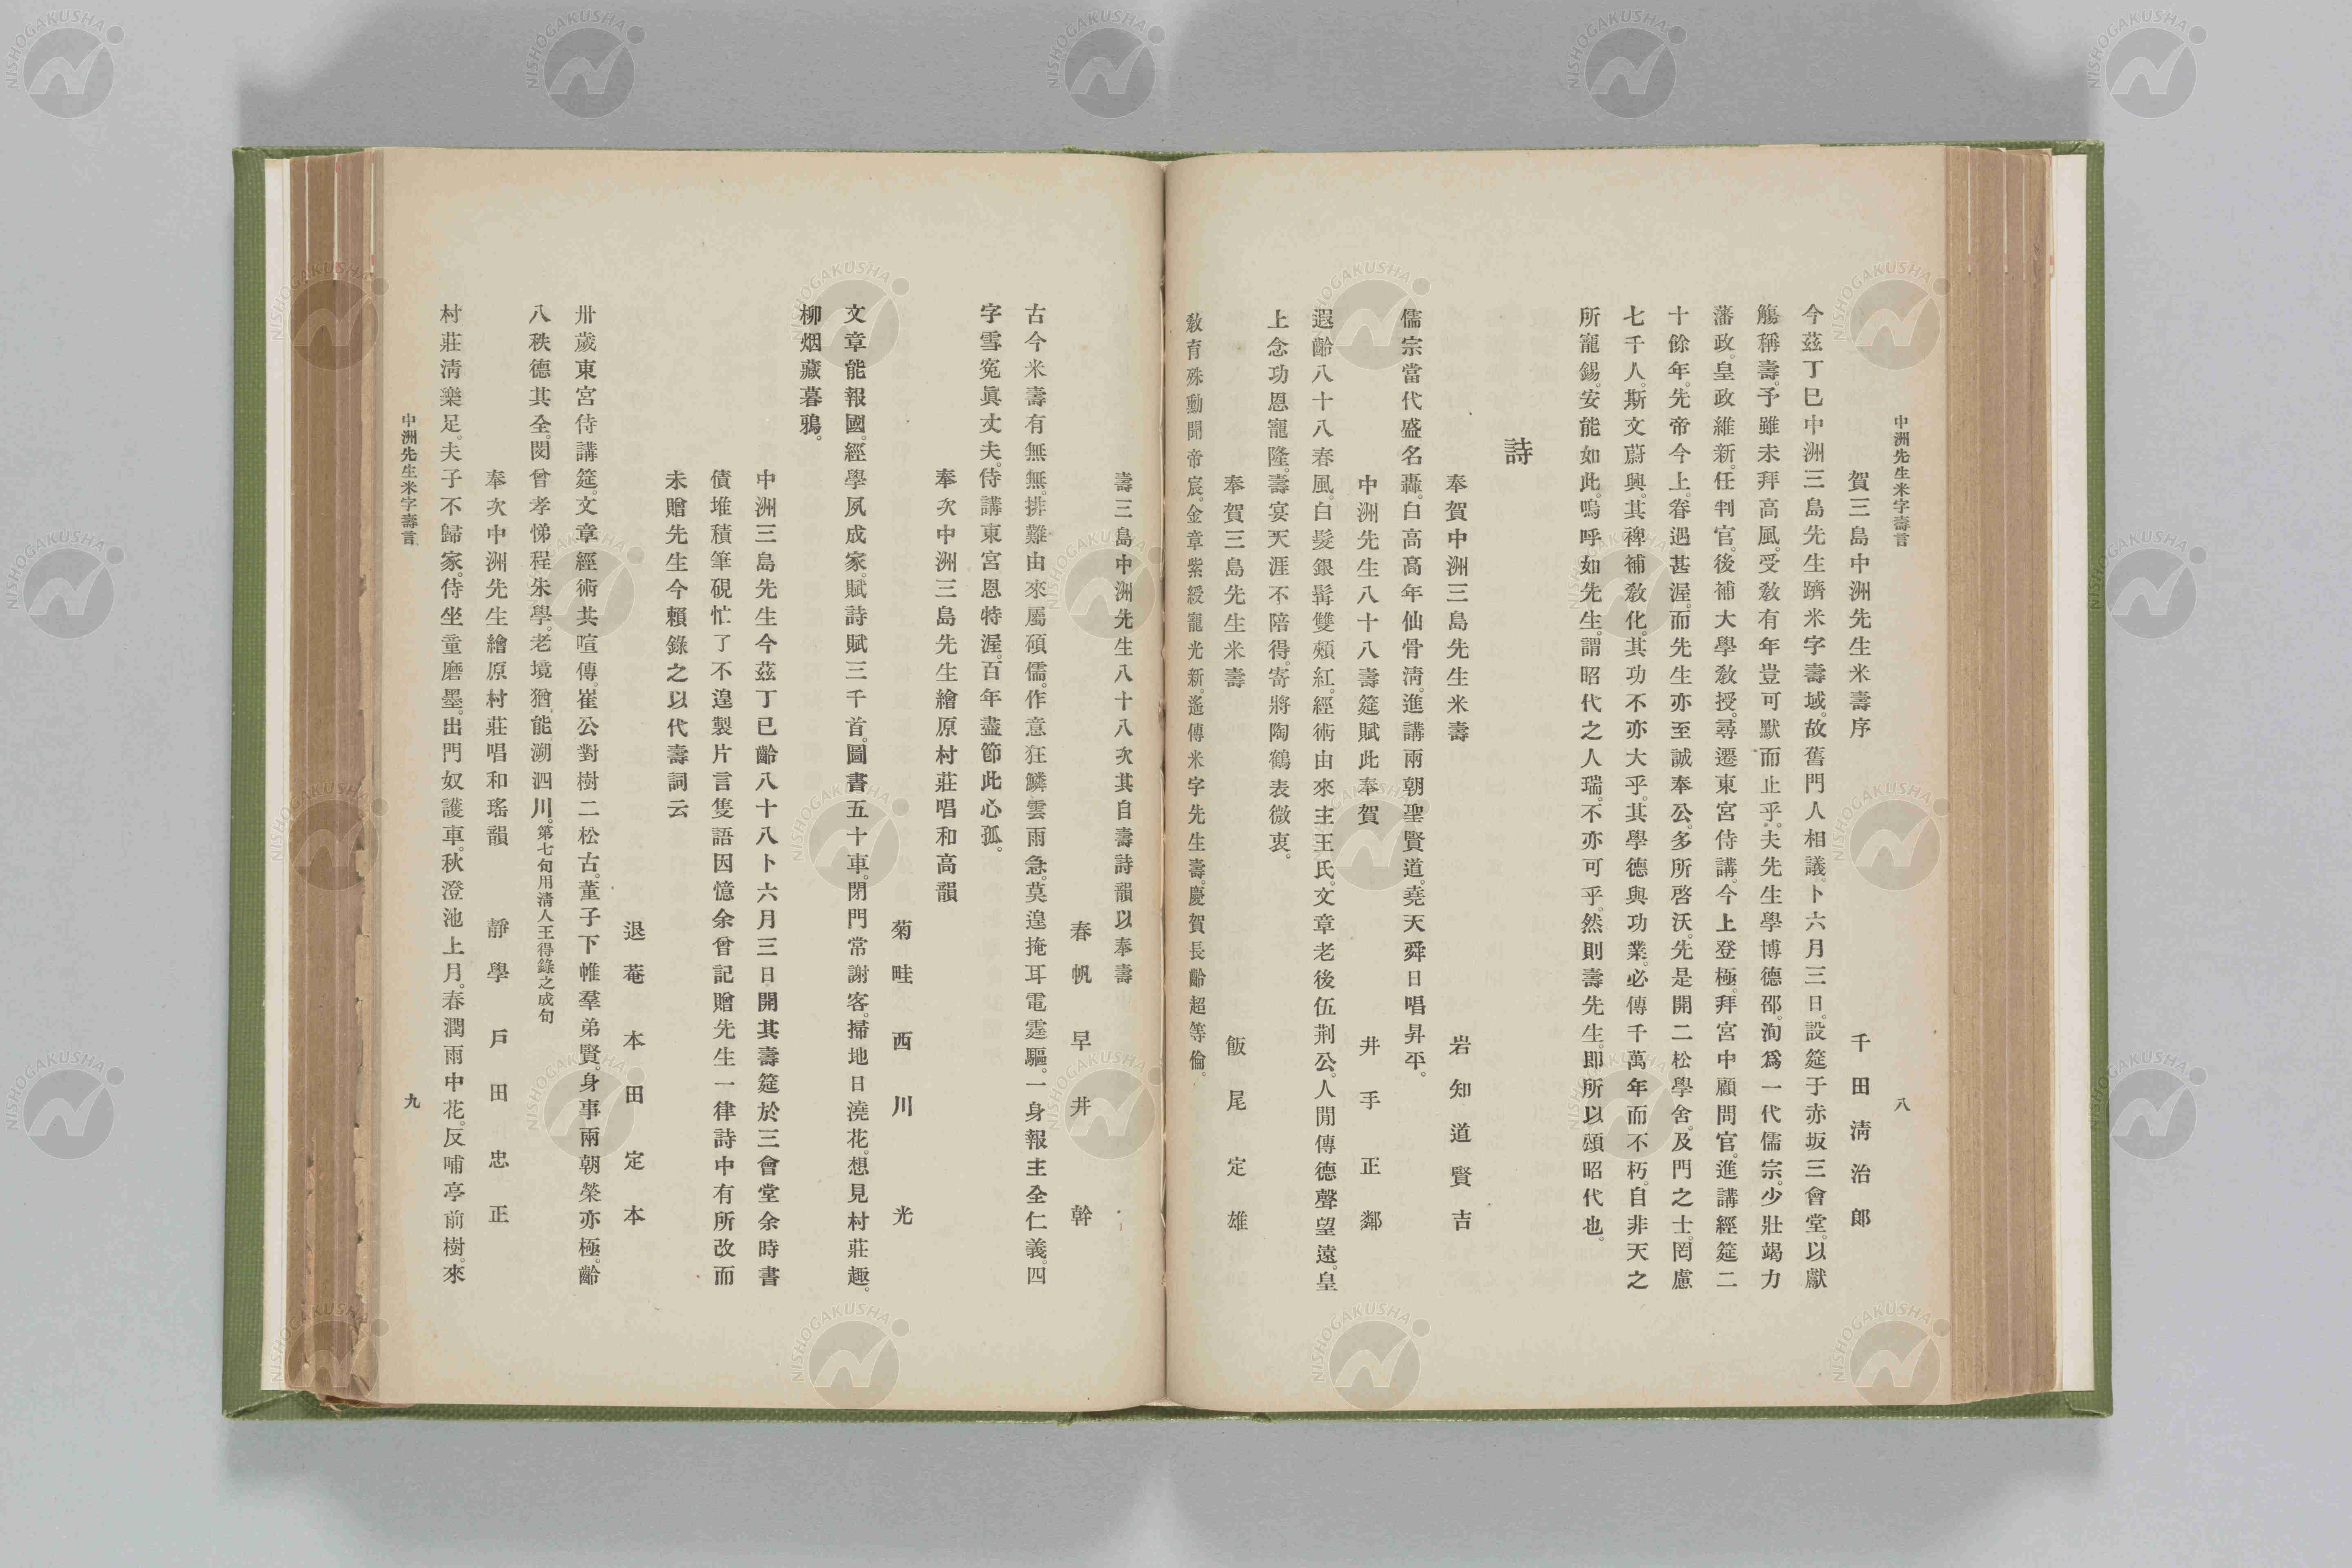 中洲先生米字壽言
八
賀三島中洲先生米壽序
千田淸治郎
今茲丁巳中洲三島先生躋米字壽域。故舊門人相議。卜六月三日。設筵于赤坂三會堂。以獻
觴稱壽。予雖未拜高風。受敎有年豈可默而止乎。夫先生學博德邵。洵爲一代儒宗。少壯竭力
藩政。皇政維新。任判官。後補大學敎授。尋遷東宮侍講。今上登極。拜宮中顧問官。進講經筵二
十餘年。先帝今上。眷遇甚渥。而先生亦至誠奉公。多所啓沃。先是開二松學舍。及門之士。罔慮
七千人。斯文蔚興。其裨補敎化。其功不亦大乎。其學德與功業。必傳千萬年而不朽。自非天之
所寵錫。安能如此。嗚呼如先生。謂昭代之人瑞。不亦可乎。然則壽先生。卽所以頌昭代也。
詩
奉賀中洲三島先生米壽
岩知道賢吉
儒宗當代盛名轟。白高高年仙骨淸。進講兩朝聖賢道。堯天舜日唱昇平。
中洲先生八十八壽筵賦此奉賀
井手正鄰
遐齡八十八春風。白髮銀髯雙頰紅。經術由來主王氏。文章老後伍荆公。人閒傳德聲望遠。皇
上念功恩寵隆。壽宴天涯不陪得。寄將陶鶴表微衷。
奉賀三島先生米壽
飯尾定雄
敎育殊勳聞帝宸。金章紫綬寵光新。遙傳米字先生壽。慶賀長齡超等倫。
壽三島中洲先生八十八次其自壽詩韻以奉壽
春帆早井幹
古今米壽有無無。排難由來屬碩儒。作意狂鱗雲雨急。莫遑掩耳電霆驅。一身報主全仁義。四
字雪冤眞丈夫。侍講東宮恩特渥。百年盡節此心孤。
奉次中洲三島先生繪原村莊唱和高韻
菊畦西川光
文章能報國。經學夙成家。賦詩賦三千首。圖書五十車。閉門常謝客。掃地日澆花。想見村莊趣。
柳烟藏暮鴉。
中洲三島先生今茲丁巳齡八十八卜六月三日開其壽筵於三會堂余時書
債堆積筆硯忙了不遑製片言隻語因憶余曾記贈先生一律詩中有所改而
未贈先生今賴錄之以代壽詞云
退菴本田定本
卅歲東宮侍講筵。文章經術共喧傳。崔公對樹二松古。董子下帷羣弟賢。身事兩朝榮亦極。齡
八秩德其全。閔曾孝悌程朱學。老境猶能溯泗川。第七句用淸人王得錄之成句
奉次中洲先生繪原村莊唱和瑤韻
靜學戶田忠正
村莊淸樂足。夫子不歸家。侍坐童磨墨。出門奴護車。秋澄池上月。春潤雨中花。反哺亭前樹。來
中洲先生米字壽言
九